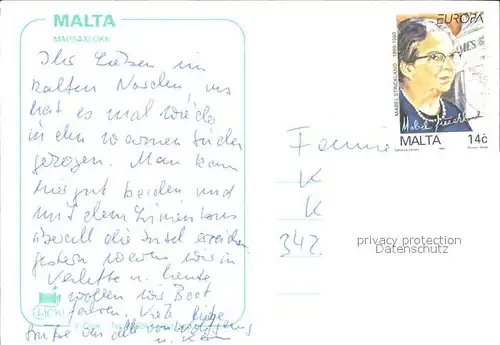 MALTA
MARSAXLOKK
Ihr Lieben im
kalten Norden, uns
hat es mal wieder
in den warmen Süden
gezogen. Man kann
hier gut baden und
mit dem Linienbus
überall die Insel erreichen
gestern waren wir in
Valetta u. heute
wollen wir Boot
fahren. Viele liebe
Grüße an alle von Wolfgang
u.
EUROPA
MABEL STRICKLAND 1899-1988
Mabel Strickland
MALTA 14c
Familie
K
K
342
privacy protection
Datenschutz